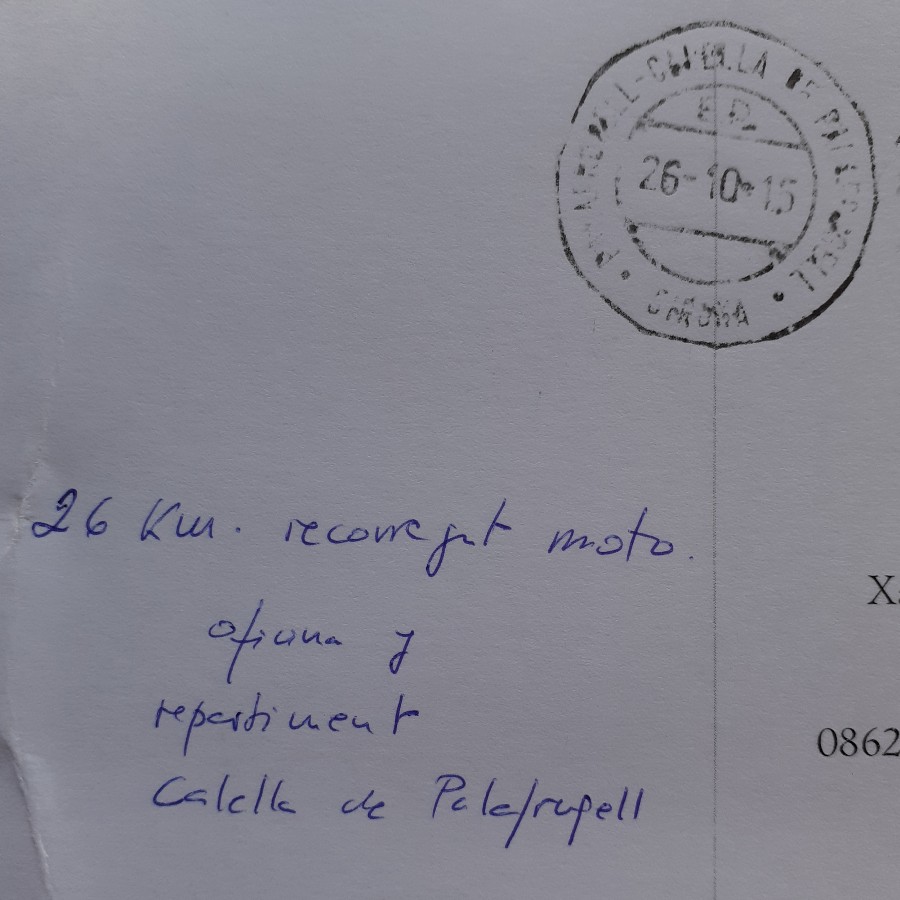 PALAFRUGELL-CALELLA DE PALAFRUGELL
E.D.
26-10-15
GIRONA
26 Km. recorregut moto.
oficina y
repartiment
Calella de Palafrugell
0862